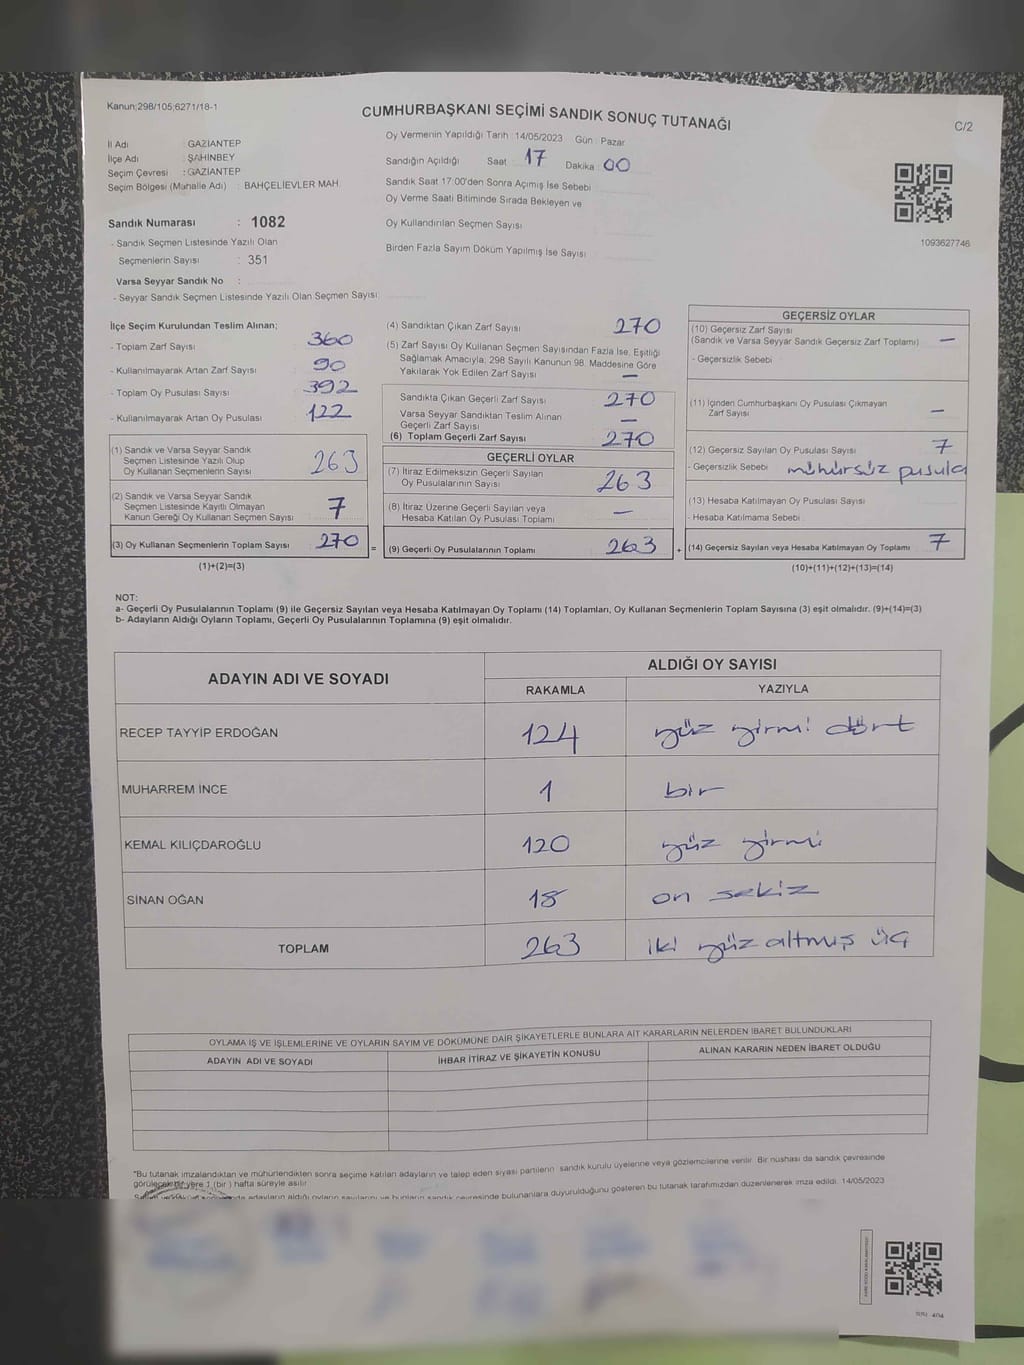 Kanun;298/105;6271/18-1
CUMHURBAŞKANI SEÇİMİ SANDIK SONUÇ TUTANAĞI
C/2
İl Adı : GAZİANTEP
İlçe Adı : ŞAHİNBEY
Seçim Çevresi : GAZİANTEP
Seçim Bölgesi (Mahalle Adı) : BAHÇELİEVLER MAH.
Oy Vermenin Yapıldığı Tarih : 14/05/2023 Gün : Pazar
Sandığın Açıldığı Saat : 17 Dakika : 00
Sandık Saat 17:00'den Sonra Açımış İse Sebebi
Oy Verme Saati Bitiminde Sırada Bekleyen ve
Oy Kullandırılan Seçmen Sayısı
Birden Fazla Sayım Döküm Yapılmış İse Sayısı
1093627746
Sandık Numarası : 1082
- Sandık Seçmen Listesinde Yazılı Olan
Seçmenlerin Sayısı : 351
Varsa Seyyar Sandık No :
- Seyyar Sandık Seçmen Listesinde Yazılı Olan Seçmen Sayısı:
İlçe Seçim Kurulundan Teslim Alınan;
- Toplam Zarf Sayısı 360
- Kullanılmayarak Artan Zarf Sayısı 90
- Toplam Oy Pusulası Sayısı 392
- Kullanılmayarak Artan Oy Pusulası 122
(1) Sandık ve Varsa Seyyar Sandık
Seçmen Listesinde Yazılı Olup
Oy Kullanan Seçmenlerin Sayısı 263
(2) Sandık ve Varsa Seyyar Sandık
Seçmen Listesinde Kayıtlı Olmayan
Kanun Gereği Oy Kullanan Seçmen Sayısı 7
(3) Oy Kullanan Seçmenlerin Toplam Sayısı 270 =
(1)+(2)=(3)
(4) Sandıktan Çıkan Zarf Sayısı 270
(5) Zarf Sayısı Oy Kullanan Seçmen Sayısından Fazla İse, Eşitliği
Sağlamak Amacıyla; 298 Sayılı Kanunun 98. Maddesine Göre
Yakılarak Yok Edilen Zarf Sayısı —
Sandıkta Çıkan Geçerli Zarf Sayısı 270
Varsa Seyyar Sandıktan Teslim Alınan
Geçerli Zarf Sayısı —
(6) Toplam Geçerli Zarf Sayısı 270
GEÇERLİ OYLAR
(7) İtiraz Edilmeksizin Geçerli Sayılan
Oy Pusulalarının Sayısı 263
(8) İtiraz Üzerine Geçerli Sayılan veya
Hesaba Katılan Oy Pusulası Toplamı —
(9) Geçerli Oy Pusulalarının Toplamı 263 +
GEÇERSİZ OYLAR
(10) Geçersiz Zarf Sayısı
(Sandık ve Varsa Seyyar Sandık Geçersiz Zarf Toplamı) —
- Geçersizlik Sebebi
(11) İçinden Cumhurbaşkanı Oy Pusulası Çıkmayan
Zarf Sayısı —
(12) Geçersiz Sayılan Oy Pusulası Sayısı 7
- Geçersizlik Sebebi mühürsüz pusula
(13) Hesaba Katılmayan Oy Pusulası Sayısı
- Hesaba Katılmama Sebebi
(14) Geçersiz Sayılan veya Hesaba Katılmayan Oy Toplamı 7
(10)+(11)+(12)+(13)=(14)
NOT:
a- Geçerli Oy Pusulalarının Toplamı (9) ile Geçersiz Sayılan veya Hesaba Katılmayan Oy Toplamı (14) Toplamları, Oy Kullanan Seçmenlerin Toplam Sayısına (3) eşit olmalıdır. (9)+(14)=(3)
b- Adayların Aldığı Oyların Toplamı, Geçerli Oy Pusulalarının Toplamına (9) eşit olmalıdır.
ADAYIN ADI VE SOYADI ALDIĞI OY SAYISI
RAKAMLA YAZIYLA
RECEP TAYYİP ERDOĞAN 124 yüz yirmi dört
MUHARREM İNCE 1 bir
KEMAL KILIÇDAROĞLU 120 yüz yirmi
SİNAN OĞAN 18 on sekiz
TOPLAM 263 iki yüz altmış üç
OYLAMA İŞ VE İŞLEMLERİNE VE OYLARIN SAYIM VE DÖKÜMÜNE DAİR ŞİKAYETLERLE BUNLARA AİT KARARLARIN NELERDEN İBARET BULUNDUKLARI
ADAYIN ADI VE SOYADI İHBAR İTİRAZ VE ŞİKAYETİN KONUSU ALINAN KARARIN NEDEN İBARET OLDUĞU
*Bu tutanak imzalandıktan ve mühürlendikten sonra seçime katılan adayların ve talep eden siyasi partilerin sandık kurulu üyelerine veya gözlemcilerine verilir. Bir nüshası da sandık çevresinde
görülecek bir yere 1 (bir) hafta süreyle asılır.
adayların aldığı oyların sayılarını ve bunların sandık çevresinde bulunanlara duyurulduğunu gösteren bu tutanak tarafımızdan düzenlenerek imza edildi. 14/05/2023